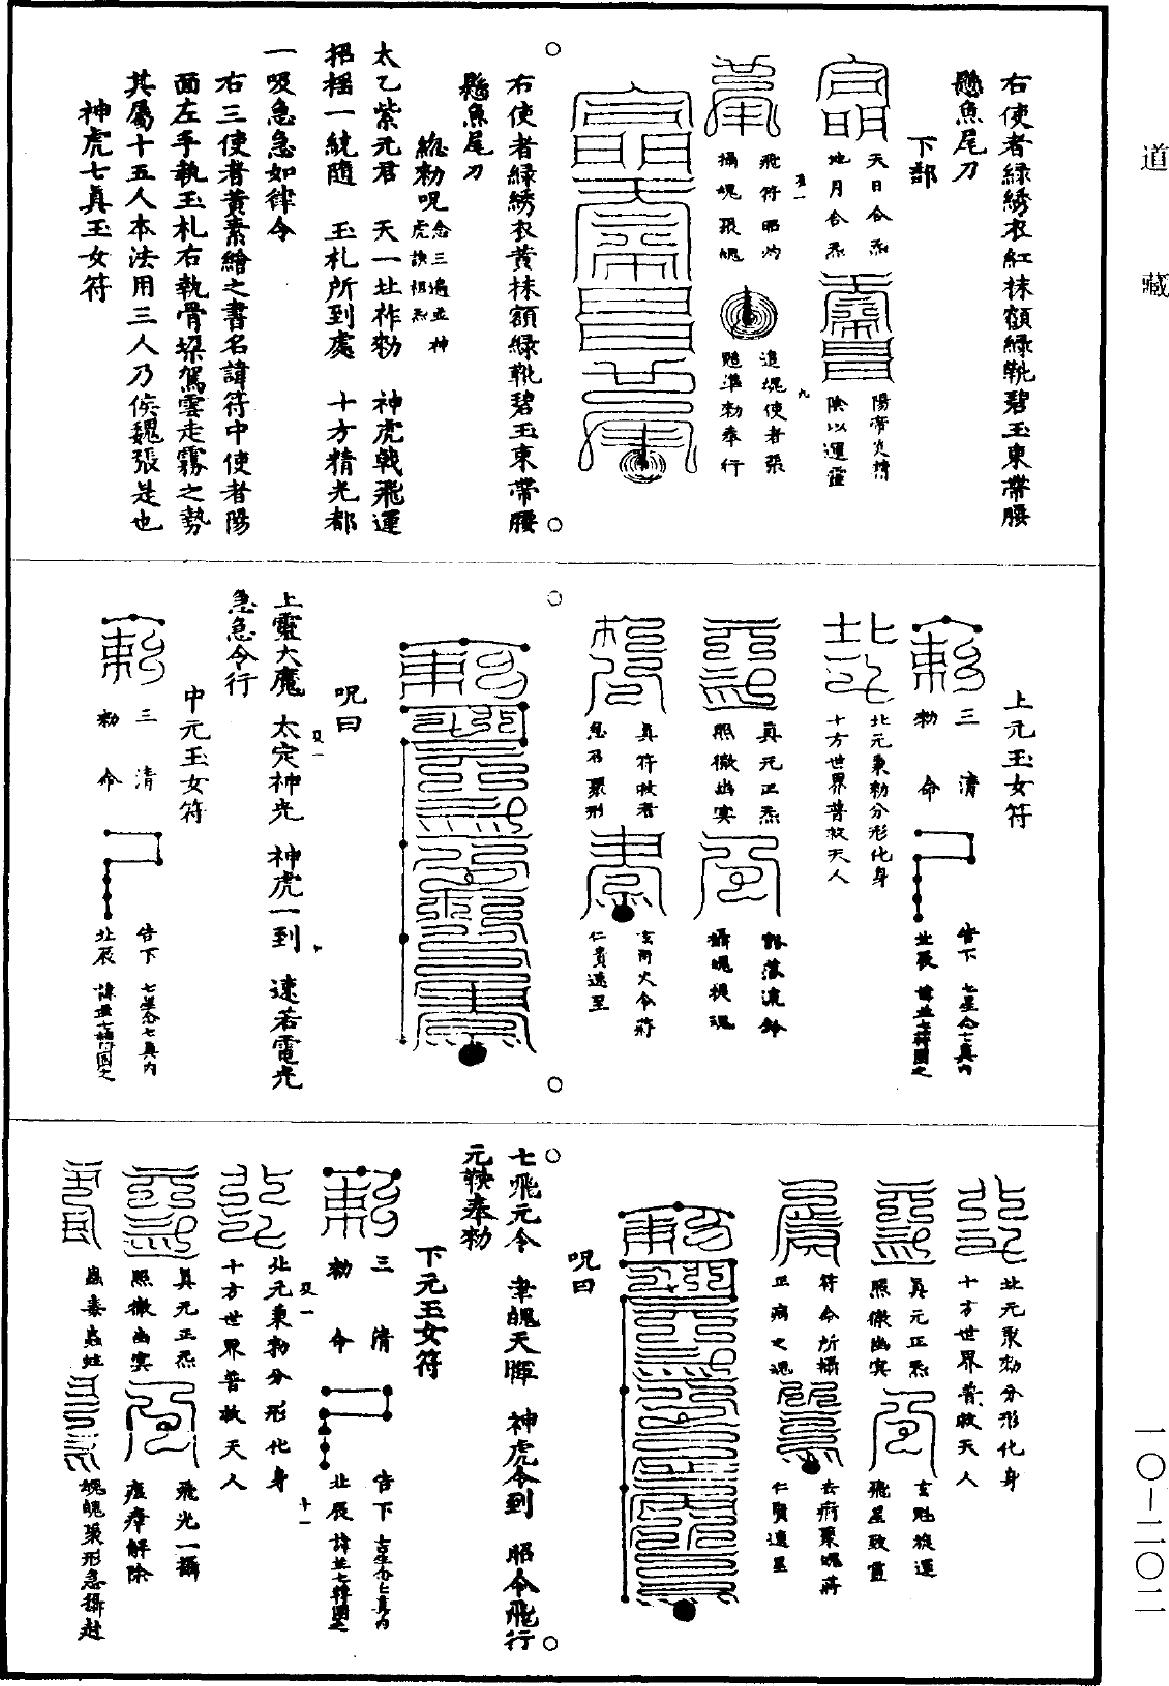 道藏
右使者綠綉衣紅抹額綠靴碧玉束帶腰
懸魚尾刀
下部
天日合炁
地月合炁
陽帝火精
陰以運靈
飛符昭灼
攝魂張魄
追魂使者張
隨準勑奉行
右使者綠綉衣黃抹額綠靴碧玉束帶腰
懸魚尾刀
總勑呪念三遍並神
虎訣祖炁
太乙紫元君 天一北祚勑 神虎戟飛運
招搖一統隨 玉札所到處 十方精光都
一吸急急如律令
右三使者黃素繪之書名諱符中使者陽
面左手執玉札右執骨朶駕雲走霧之勢
其屬十五人本法用三人乃侯魏張是也
神虎七真玉女符
上元玉女符
三清
勑命
告下
北辰
七星合七真內
北元秉勑分形化身
十方世界普救天人
真元正炁
照徹幽冥
豁落流鈴
攝魄提魂
真符攸者
急召聚形
火令蔣
仁貴速至
呪曰
上靈大魔 太定神光 神虎一到 速若電光
急急令行
中元玉女符
三清
勑命
告下
北辰
七星合七真內
北元秉勑分形化身
十方世界普救天人
真元正炁
照徹幽冥
玄魁旋運
飛星致靈
符命所攝
正病之魂
聚魄蔣
仁貴速至
呪曰
七飛元令 聿魄天暉 神虎令到 昭令飛行
元鞅奉勑
下元玉女符
三清
勑命
告下
北辰
北元秉勑分形化身
十方世界普救天人
真元正炁
照徹幽冥
飛光一攝
瘟瘴解除
蟲毒蟲蛀
魂魄聚形急攝赴
一〇—二〇二